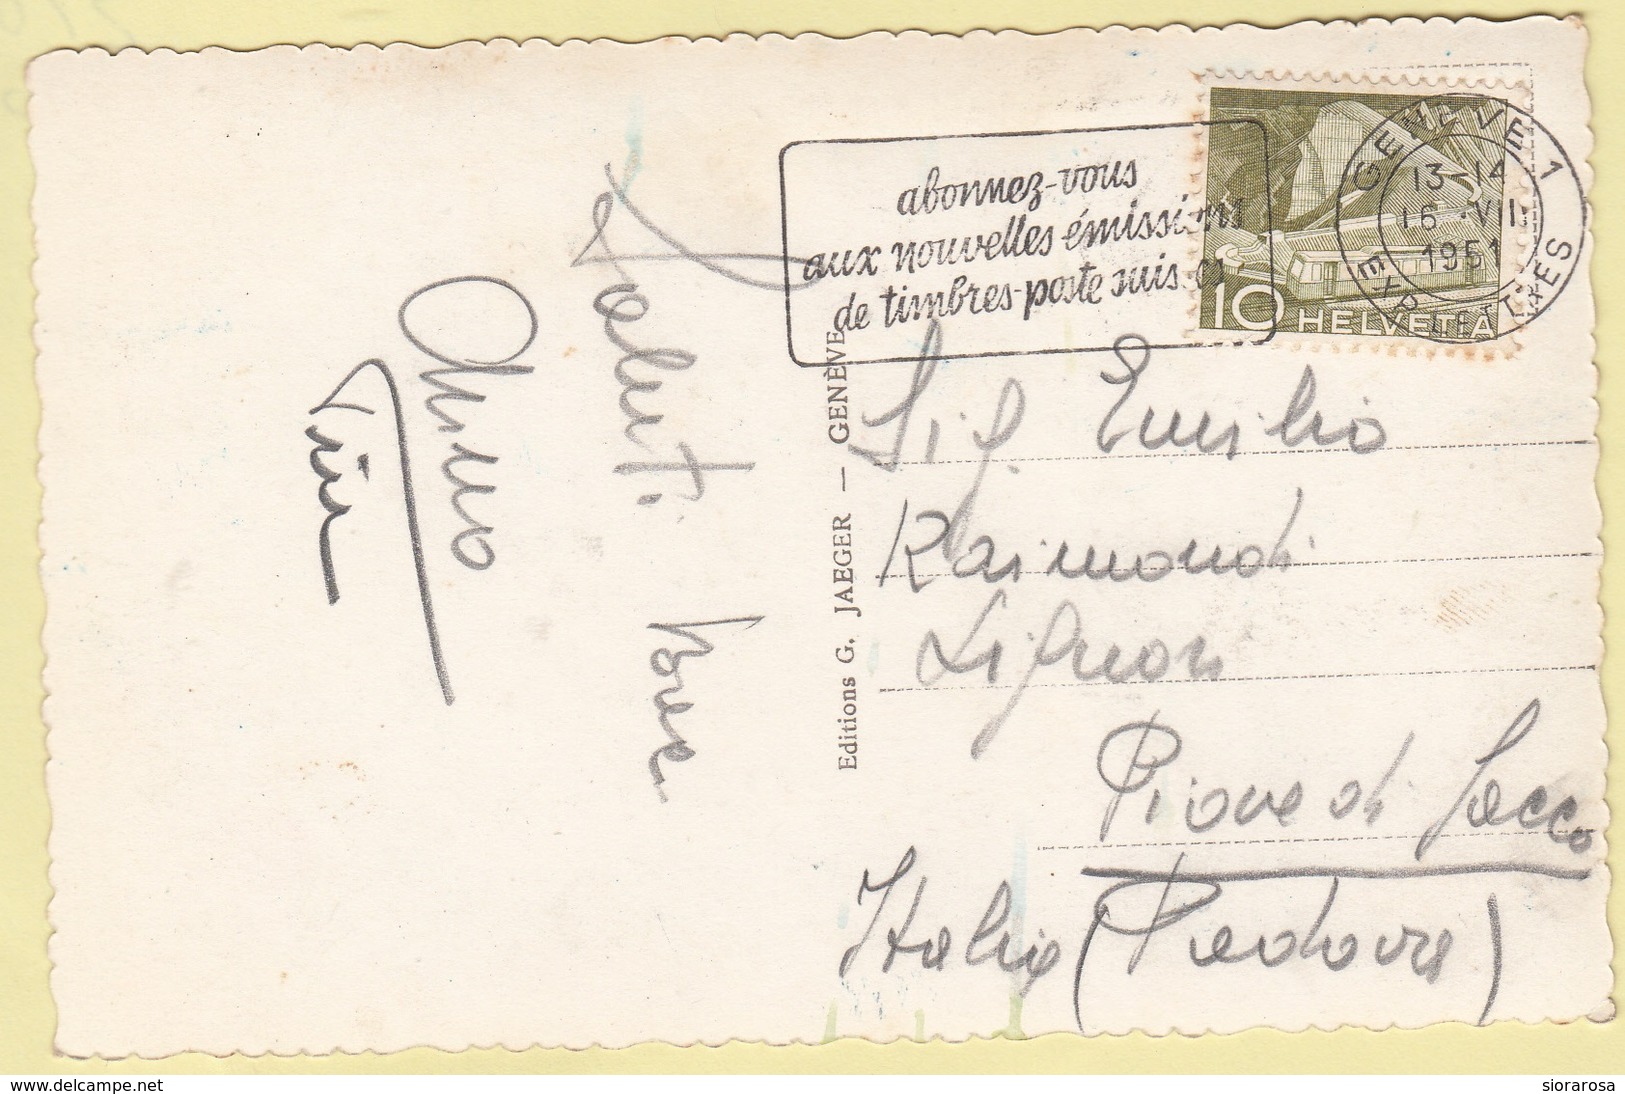 abonnez-vous
aux nouvelles émissions
de timbres-poste suisses
GENEVE 1
13-14
16.VII
1951
EXP. LETTRES
10 HELVETIA
Saluti
Editions G. JAEGER — GENÈVE
Sig. Emilio
Raimondi
Piove di Sacco
Italia (Padova)
www.delcampe.net
siorarosa